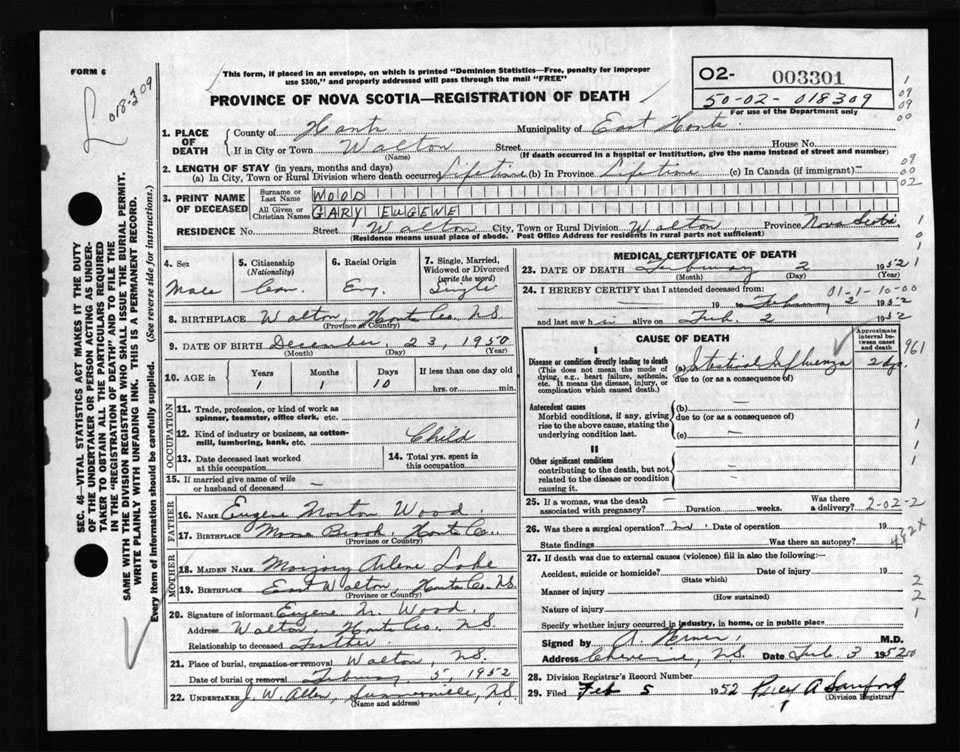 FORM 6
This form, if placed in an envelope, on which is printed "Dominion Statistics—Free, penalty for improper
use $300," and properly addressed will pass through the mail "FREE"
PROVINCE OF NOVA SCOTIA—REGISTRATION OF DEATH
O2- 003301
50-02-018309
For use of the Department only
018309
1. PLACE OF DEATH
County of Hants Municipality of East Hants
If in City or Town Walton Street House No.
(Name) (If death occurred in a hospital or institution, give the name instead of street and number)
2. LENGTH OF STAY (in years, months and days)
(a) In City, Town or Rural Division where death occurred Lifetime (b) In Province Lifetime (c) In Canada (if immigrant) —
3. PRINT NAME OF DECEASED
Surname or Last Name WOOD
All Given or Christian Names GARY EUGENE
RESIDENCE No. Street Walton City, Town or Rural Division Walton, Province Nova Scotia
(Residence means usual place of abode. Post Office Address for residents in rural parts not sufficient)
4. Sex Male
5. Citizenship (Nationality) Can.
6. Racial Origin Eng.
7. Single, Married, Widowed or Divorced (write the word) Single
8. BIRTHPLACE Walton, Hants Co. N.S.
(Province or Country)
9. DATE OF BIRTH December 23, 1950
(Month) (Day) (Year)
10. AGE in Years Months Days If less than one day old
1 1 10 hrs. or min.
OCCUPATION
11. Trade, profession, or kind of work as spinner, teamster, office clerk, etc.
12. Kind of industry or business, as cotton-mill, lumbering, bank, etc. Child
13. Date deceased last worked at this occupation
14. Total yrs. spent in this occupation
15. If married give name of wife or husband of deceased —
FATHER
16. NAME Eugene Morton Wood
17. BIRTHPLACE Moose Brook, Hants Co.
(Province or Country)
MOTHER
18. MAIDEN NAME Marjory Arlene Lake
19. BIRTHPLACE East Walton, Hants Co. N.S.
(Province or Country)
20. Signature of informant Eugene M. Wood.
Address Walton, Hants Co. N.S.
Relationship to deceased Father
21. Place of burial, cremation or removal Walton, N.S.
Date of burial or removal February 5, 1952
22. UNDERTAKER J. W. Allen, Summerville, N.S.
(Name and address)
MEDICAL CERTIFICATE OF DEATH
23. DATE OF DEATH February 2 1952
(Month) (Day) (Year)
24. I HEREBY CERTIFY that I attended deceased from: 01-1-10-00
to February 2 1952
and last saw h im alive on Feb. 2 1952
CAUSE OF DEATH
Approximate interval between onset and death
I
Disease or condition directly leading to death
(This does not mean the mode of dying, e.g., heart failure, asthenia, etc. It means the disease, injury, or complication which caused death.)
(a) Intestinal Influenza 2 dys.
due to (or as a consequence of)
961
Antecedent causes
Morbid conditions, if any, giving rise to the above cause, stating the underlying condition last.
(b) —
due to (or as a consequence of)
(c) —
II
Other significant conditions
contributing to the death, but not related to the disease or condition causing it.
25. If a woman, was the death associated with pregnancy? — Duration weeks. Was there a delivery?
2-02-2
26. Was there a surgical operation? no. Date of operation 19
State findings Was there an autopsy?
27. If death was due to external causes (violence) fill in also the following:—
Accident, suicide or homicide? Date of injury 19
(State which)
Manner of injury
(How sustained)
Nature of injury
Specify whether injury occurred in industry, in home, or in public place
Signed by M.D.
Address N.S. Date Feb. 3 1952
28. Division Registrar's Record Number
29. Filed Feb 5 1952 Percy A Sanford
(Division Registrar)
SEC. 46—VITAL STATISTICS ACT MAKES IT THE DUTY
OF THE UNDERTAKER OR PERSON ACTING AS UNDERTAKER TO OBTAIN ALL THE PARTICULARS REQUIRED
IN THE "REGISTRATION OF DEATH" AND TO FILE THE
SAME WITH THE DIVISION REGISTRAR WHO SHALL ISSUE THE BURIAL PERMIT.
WRITE PLAINLY WITH UNFADING INK. THIS IS A PERMANENT RECORD.
Every item of information should be carefully supplied. (See reverse side for instructions.)